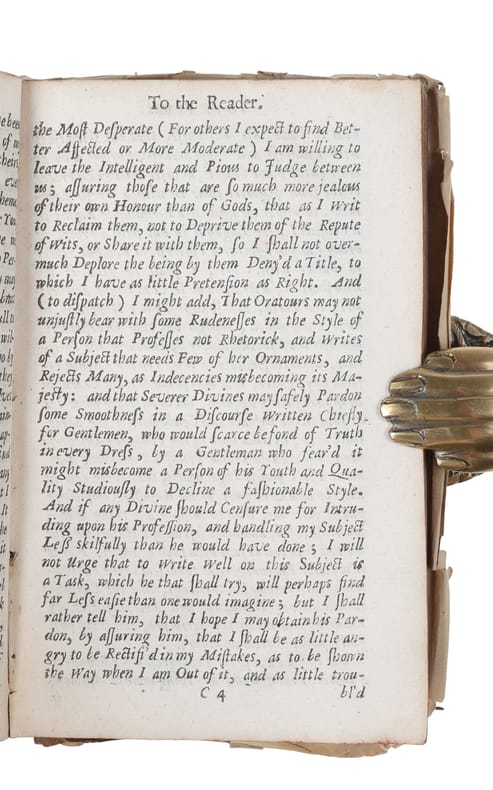 To the Reader.
the Moſt Deſperate ( For others I expect to find Bet-
ter Affected or More Moderate ) I am willing to
leave the Intelligent and Pious to Judge between
us ; aſſuring thoſe that are ſo much more jealous
of their own Honour than of Gods, that as I Writ
to Reclaim them, not to Deprive them of the Repute
of Wits, or Share it with them, ſo I ſhall not over-
much Deplore the being by them Deny'd a Title, to
which I have as little Pretenſion as Right. And
( to diſpatch ) I might add, That Oratours may not
unjuſtly bear with ſome Rudeneſſes in the Style of
a Perſon that Profeſſes not Rhetorick, and Writes
of a Subject that needs Few of her Ornaments, and
Rejects Many, as Indecencies misbecoming its Ma-
jeſty : and that Severer Divines may ſafely Pardon
ſome Smoothneſs in a Diſcourſe Written Chiefly
for Gentlemen, who would ſcarce be fond of Truth
in every Dreſs, by a Gentleman who fear'd it
might misbecome a Perſon of his Youth and Qua-
lity Studiouſly to Decline a faſhionable Style.
And if any Divine ſhould Cenſure me for Intru-
ding upon his Profeſſion, and handling my Subject
Leſs ſkilfully than he would have done ; I will
not Urge that to Write Well on this Subject is
a Task, which he that ſhall try, will perhaps find
far Leſs eaſie than one would imagine ; but I ſhall
rather tell him, that I hope I may obtain his Par-
don, by aſſuring him, that I ſhall be as little an-
gry to be Rectifi'd in my Miſtakes, as to be ſhown
the Way when I am Out of it, and as little trou-
C 4 bl'd